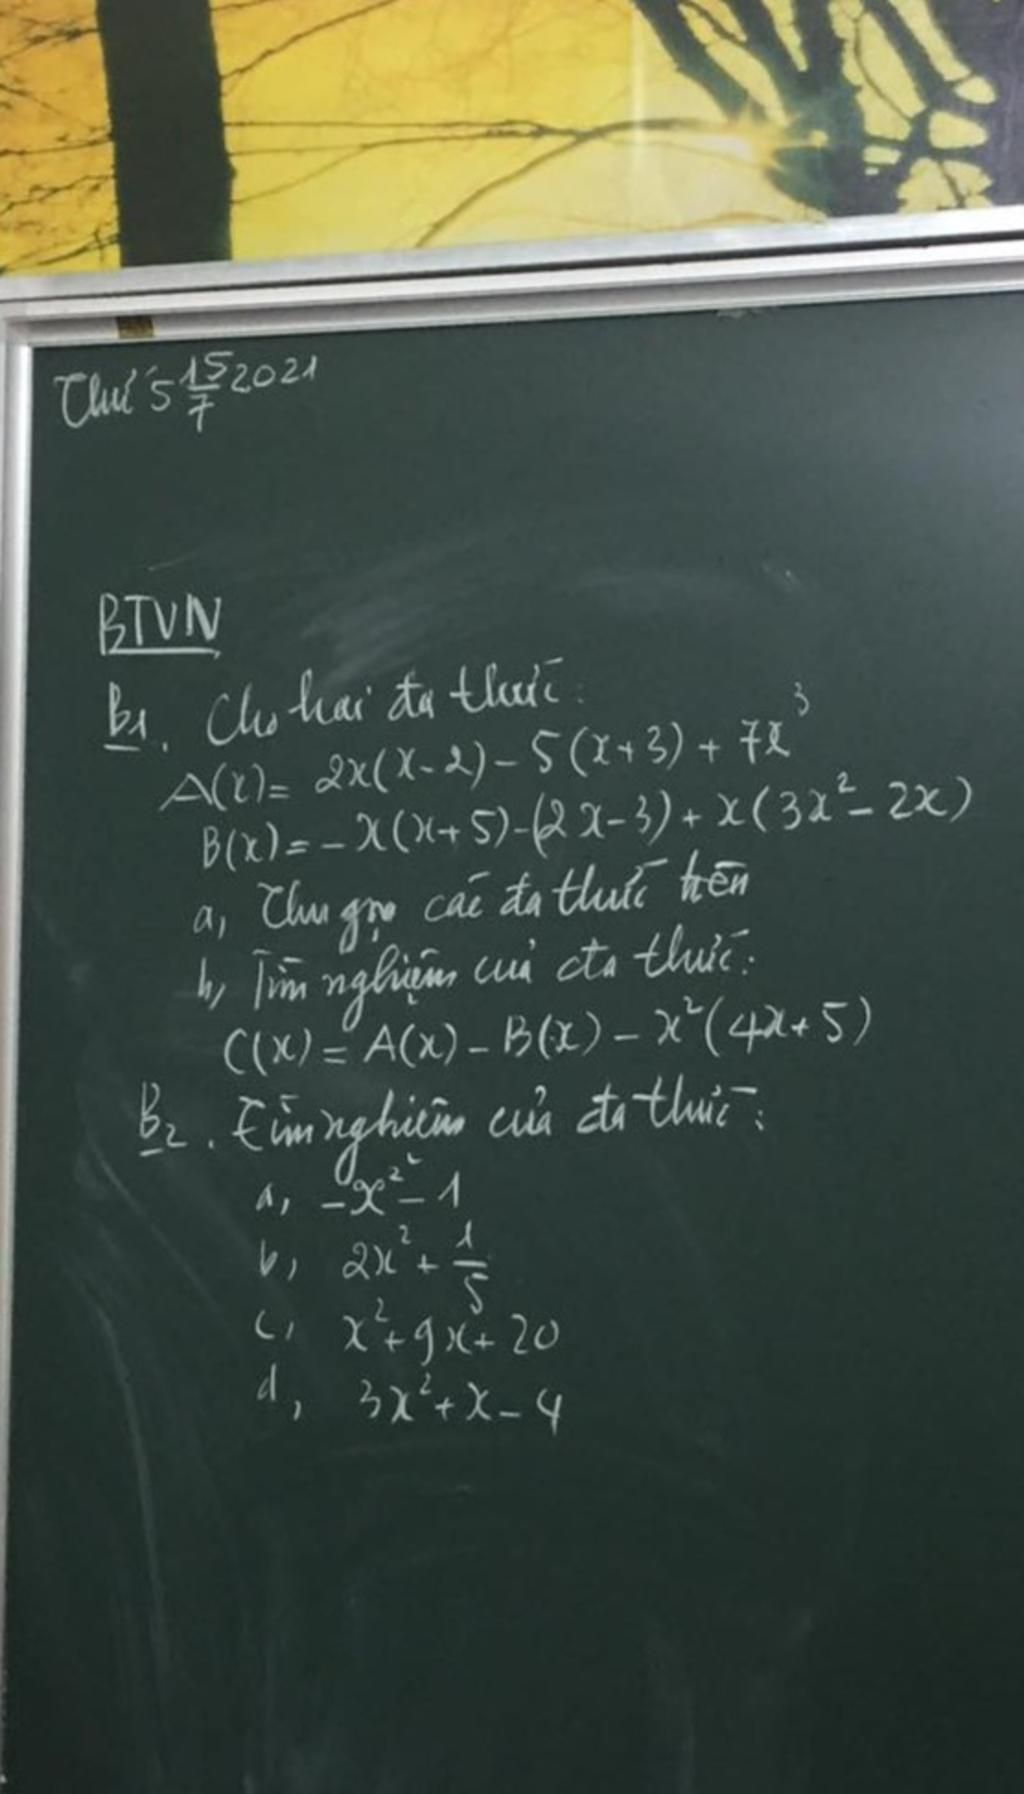 Thứ 5 15/7 2021
BTVN
B1. Cho hai đa thức:
A(x) = 2x(x-2) - 5(x+3) + 7x³
B(x) = -x(x+5) - (2x-3) + x(3x² - 2x)
a, Thu gọn các đa thức trên
b, Tìm nghiệm của đa thức:
C(x) = A(x) - B(x) - x²(4x+5)
B2. Tìm nghiệm của đa thức:
a, -x² - 1
b, 2x² + 1/5
c, x² + 9x + 20
d, 3x² + x - 4